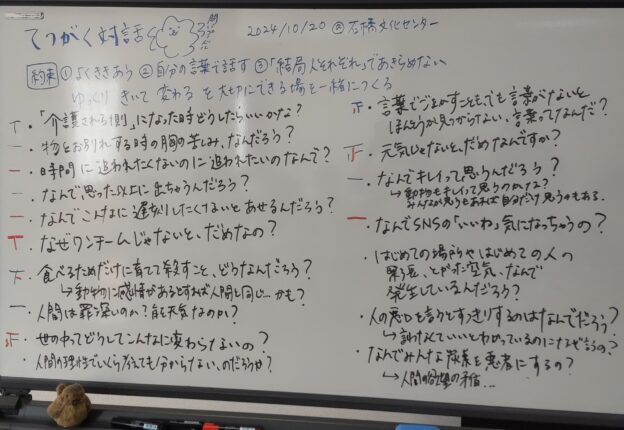 てつがく対話
2024/10/20 @石橋文化センター
約束 ①よくききあう ②自分の言葉で話す ③「結局人それぞれ」であきらめない
ゆっくり きいて 変わる を大切にできる場を一緒につくる
・「介護される側」になった時どうしたらいいかな?
・物とお別れする時の胸の苦しみ、なんだろう?
・時間に追われたくないのに追われたいのなんで?
・なんで、思った以上に
・なんでこんなに遅刻したくないとあせるんだろう?
・なぜワンチームじゃないと、だめなの?
・食べるためだけに育てて殺すこと、どうなんだろう?
→動物に感情があるとすれば人間と同じ…かも?
・人間は罪深いのか?能天気なのか?
・世の中ってどうしてこんなに変わらないの?
・人間の理性でいくら考えても分からない、のだろうか?
・言葉でごまかすことも、でも言葉がないと
ほんとうが見つからない、言葉ってなんだ?
・元気じゃないと、だめなんですか?
・なんでキレイって思うんだろう?
→動物もキレイって思うのかな?
みんなが思うもあれば自分だけ思うもある。
・なんでSNSの「いいね」気になっちゃうの?
・はじめての場所やはじめての人の
緊張、とがった空気、なんで
発生しているんだろう?
・人の悪口を言うとすっきりするのはなんでだろう?
→言わなくていいとわかっているのになぜ言うの?
・なんでみんな炭素を悪者にするの?
→人間の欲望の矛盾…